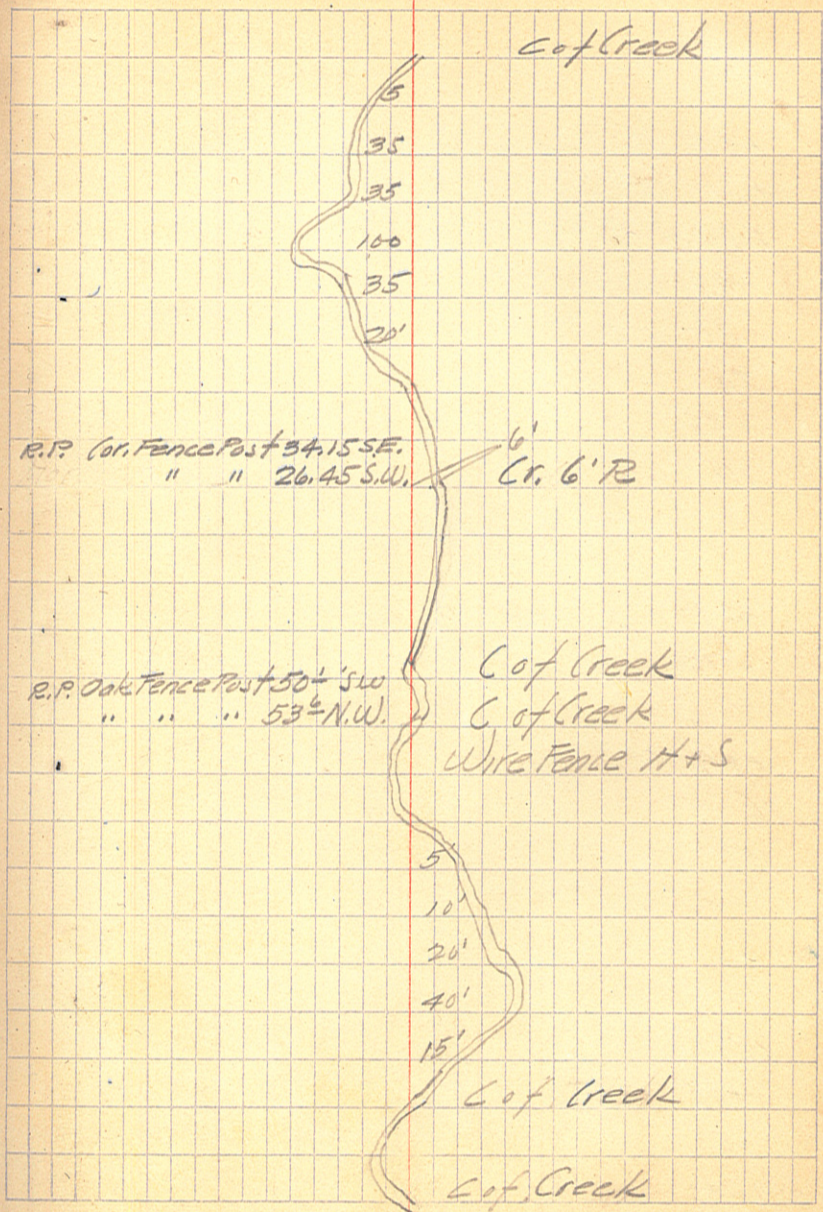 C of Creek
5
35
35
100
35
20'
R.P. Cor. Fence Post 34.15 S.E.
6'
" " 26.45 S.W.
Cr. 6' R
C of Creek
R.P. Oak Fence Post 50 S.W
" " " 53 N.W.
C of Creek
Wire Fence H + S
5'
10'
20'
40'
15'
C of Creek
C of Creek